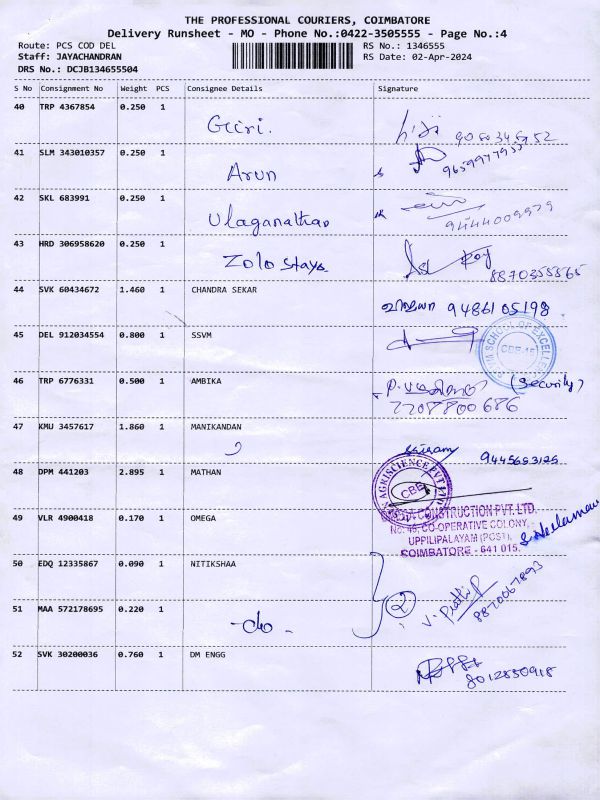 THE PROFESSIONAL COURIERS, COIMBATORE
Delivery Runsheet - MO - Phone No.:0422-3505555 - Page No.:4
Route: PCS COD DEL RS No.: 1346555
Staff: JAYACHANDRAN RS Date: 02-Apr-2024
DRS No.: DCJB134655504
S No Consignment No Weight PCS Consignee Details Signature
40 TRP 4367854 0.250 1 Giri.
41 SLM 343010357 0.250 1 Arun
42 SKL 683991 0.250 1 Ulaganathan 9444009979
43 HRD 306958620 0.250 1 Zolo stays 8870355565
44 SVK 60434672 1.460 1 CHANDRA SEKAR 9486105198
45 DEL 912034554 0.800 1 SSVM
SSVM SCHOOL OF EXCELLENCE
46 TRP 6776331 0.500 1 AMBIKA (Security)
2208800686
47 KMU 3457617 1.860 1 MANIKANDAN 9445653125
48 DPM 441203 2.895 1 MATHAN
AGRISCIENCE PVT LTD
CBE
CONSTRUCTION PVT. LTD.
49 VLR 4900418 0.170 1 OMEGA
NO. 49, CO-OPERATIVE COLONY,
UPPILIPALAYAM (POST),
COIMBATORE - 641 015.
50 EDQ 12335867 0.090 1 NITIKSHAA
2
51 MAA 572178695 0.220 1 -do- V. Prathip 8870067893
52 SVK 30200036 0.760 1 DM ENGG
8012850918